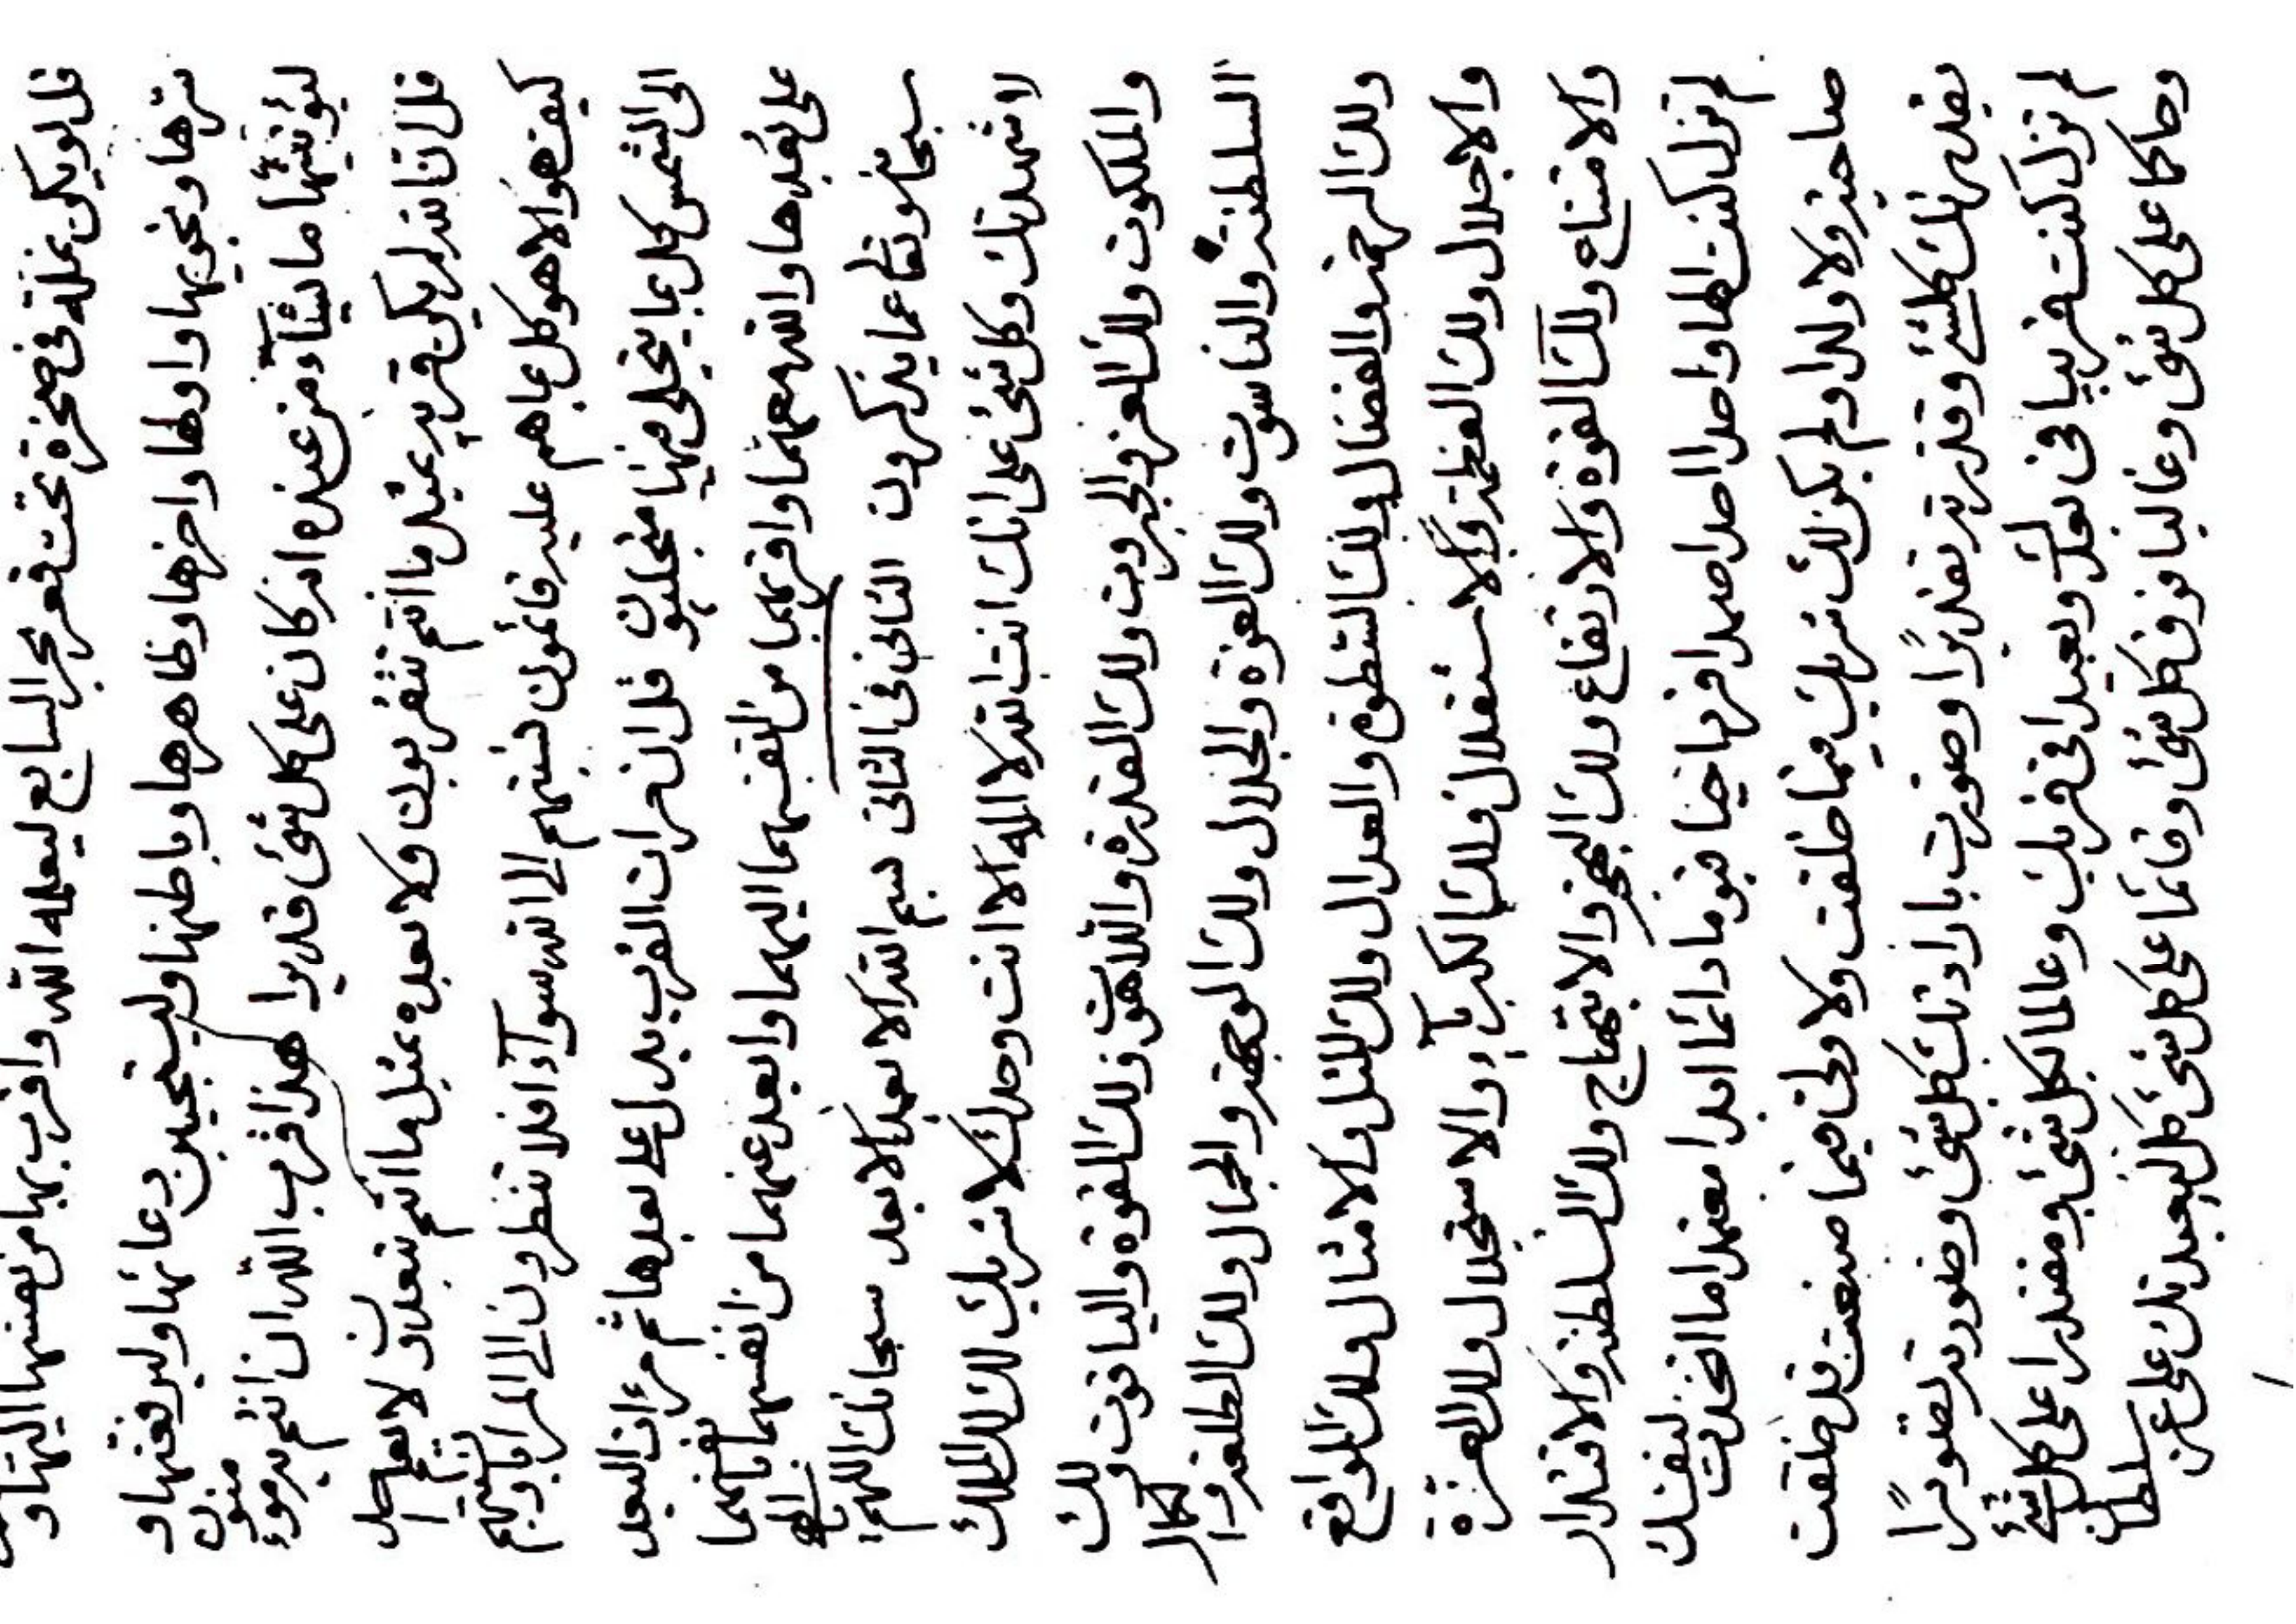 قل لو يكن نملة في صخرة تحت قعر بحر السابع ليعلمه الله واقرب بها من نفسها اليها و
سرها ونجويها واولها واخرها وظاهرها وباطنها وليستجيبن دعائها وليرفعنها و
ليؤتينها ما يشآء من عنده انه كان على كل شئ قديرا هذا قرب الله ان انتم به موقنون
قل ان الله لم يكن قربه بمثل ما انتم تتقربون ولا بعده بمثل ما انتم تبعدون لا يعلم احد
كيف هو الا هو كل بما هم عليه قائمون نسبتهم الى الله سوآء افلا تنظرون الى المرايا ونسبتهم
الى الشمس كل بما يتجلى فيها متجليون قل ان ثمرات القرب بدل على بعدها ثم مرءات البعد
على بعدها والله معهما واقرب بهما من انفسهما اليهما وابعد عنهما من انفسهما بانفسهما
سبحانه وتعالى عما يذكرون الثاني في الثاني بسم الله الابعد الابعد سبحانك اللهم يا الهي
لاشهدنك وكل شئ على انك انت الله لا اله الا انت وحدك لا شريك لك لك الملك
والملكوت ولك العز والجبروت ولك القدرة واللاهوت ولك القوة والياقوت ولك
السلطنة والناسوت ولك العزة والجلال ولك الوجهة والجمال ولك الطلعة والكمال
ولك الرحمة والفضال ولك السطوة والعدال ولك المثل والامثال ولك المواقع
والاجلال ولك العظمة والاستقلال ولك الكبرياء والاستجلال ولك العزة
والامتناع ولك القوة والارتفاع ولك البهجة والابتهاج ولك السلطنة والاقتدار
لم تزل كنت الها واحدا احدا صمدا فردا حيا قيوما دائما ابدا معتمدا ما اتخذت لنفسك
صاحبة ولا ولدا ولم يكن لك شريك فيما خلقت ولا ولى فيما صنعت قد خلقت
بقدرتك كلشئ وقدرته تقديرًا وصورت بارادتك كل شئ وصورته تصويرًا
لم تزل كنت قريبا في بعدك وبعيدا في قربك وعالما بكل شئ ومقتدرا على كل شئ
وحاكما على كل شئ وغالبا فوق كل شئ وقائما على كل شئ كل ليعبدنك على عز سلطانك